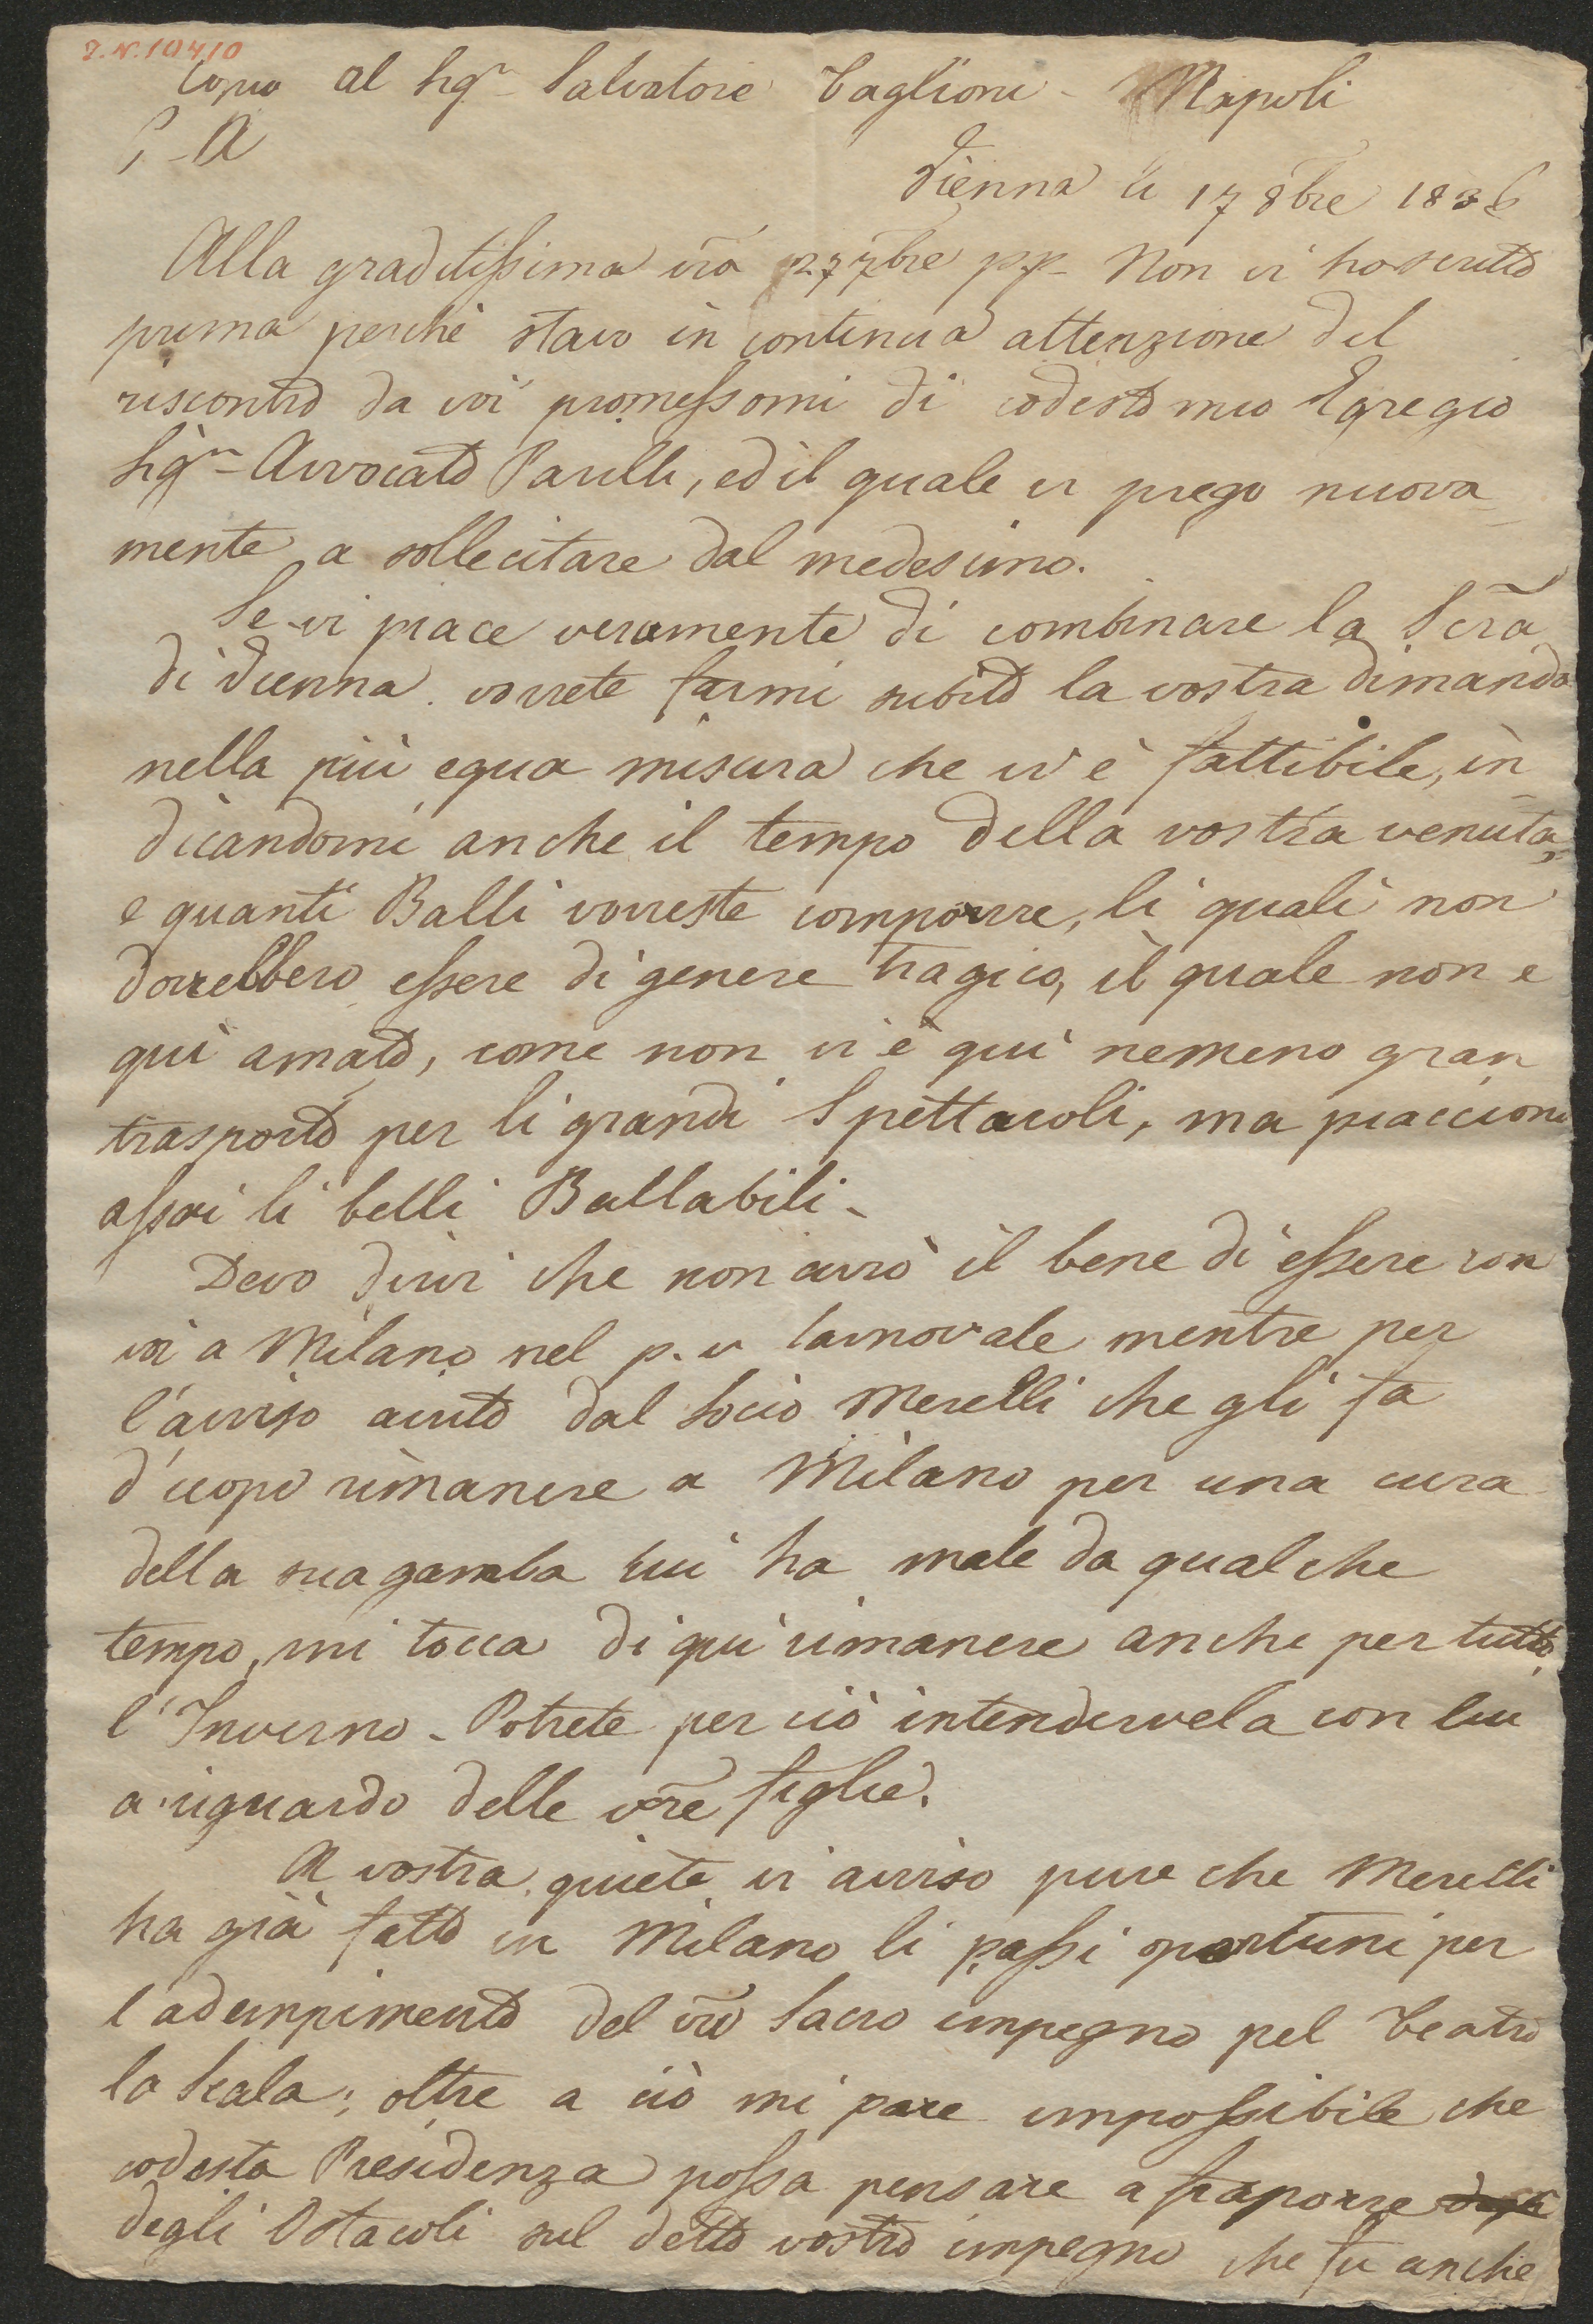 J.N.10410
Copia al Sigr Salvatore Taglioni - Napoli
S. A
Vienna li 17 8bre 1836
Alla graditissima vra 27 7bre pp Non vi ho scritto
prima perchè stavo in continua attenzione del
riscontro da voi promessomi di codesto mio Egregio
Sigr Avvocato Parilli, ed il quale vi prego nuova
mente a sollecitare dal medesimo.
Se vi piace veramente di combinare la
di Vienna vorrete farmi subito la vostra dimanda
nella più equa misura che vi è fattibile, in
dicandomi anche il tempo della vostra venuta,
e quanti Balli vorreste comporre, li quali non
dovrebbero essere di genere tragico, il quale non e
qui amato, come non vi è qui nemeno gran
trasporto per li grandi Spettacoli, ma piacciono
assai li belli Ballabili -
Devo dirvi che non avrò il bene di essere con
voi a Milano nel p. v Carnovale mentre per
l'avviso avuto dal Socio Merelli che gli fa
d'uopo rimanere a Milano per una cura
della sua gamba cui ha male da qualche
tempo, mi tocca di qui rimanere anche per tutto
l'Inverno - Potrete per ciò intendervela con lui
a riguardo delle vre figlie.
A vostra quiete vi avviso pure che Merelli
ha già fatto in Milano li passi oportuni per
l adempimento del vro Sacro impegno pel Teatro
la Scala; oltre a ciò mi pare impossibile che
codesta Presidenza possa pensare a fraporre
degli Ostacoli sul detto vostro impegno che fu anche